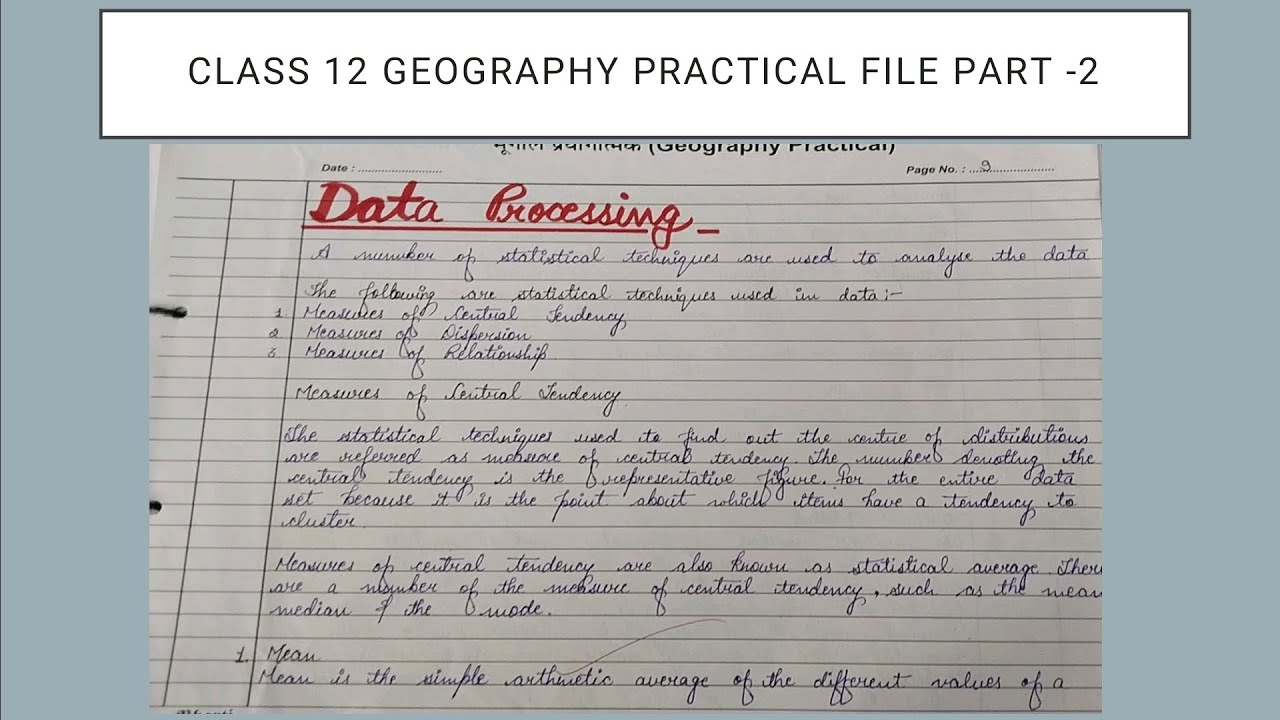 CLASS 12 GEOGRAPHY PRACTICAL FILE PART -2
(Geography Practical)
Date : ........................ Page No. : ....9....................
Data Processing
A number of statistical techniques are used to analyse the data
The following are statistical techniques used in data:-
1. Measures of Central Tendency
2. Measures of Dispersion
3 Measures of Relationship
Measures of Central Tendency
The statistical techniques used to find out the centre of distributions
are referred as measure of central tendency. The number denoting the
central tendency is the representative figure. For the entire data
set because it is the point about which items have a tendency to
cluster.
Measures of central tendency are also known as statistical average. There
are a number of the measure of central tendency, such as the mean
median & the mode.
1. Mean
Mean is the simple arthmetic average of the different values of a